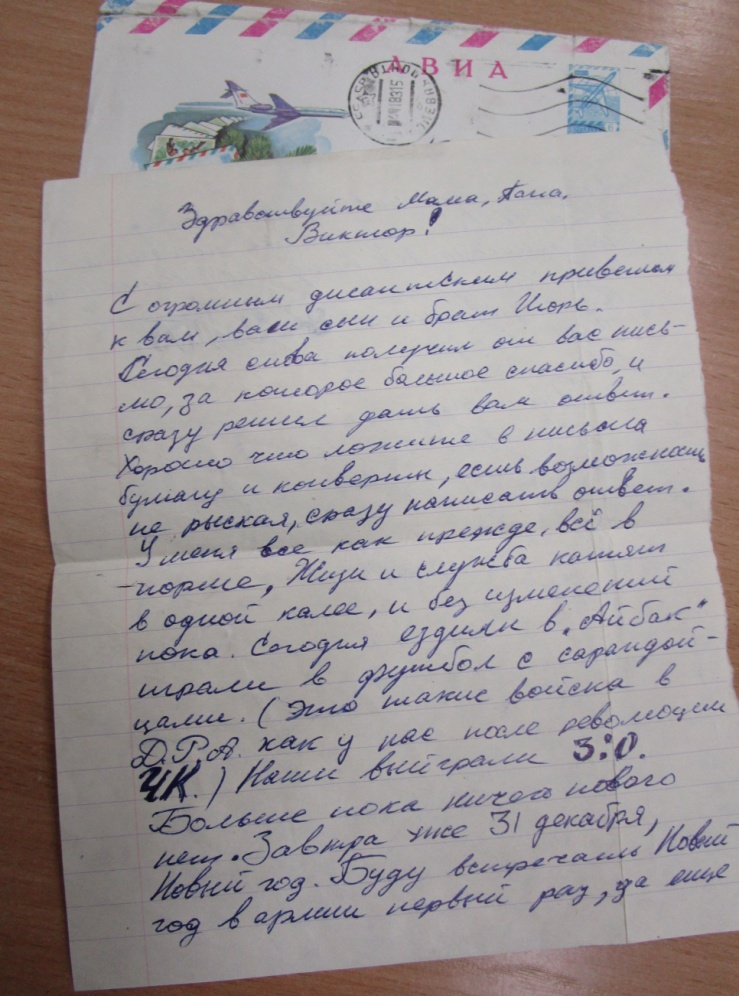 АВИА
Здравствуйте Мама, Папа,
Виктор!
С огромным дисантским приветом
к вам, ваш сын и брат Игорь.
Сегодня снова получил от вас пись-
мо, за которое большое спасибо, и
сразу решил дать вам ответ.
Хорошо что ложите в письма
бумагу и конверты, есть возможность
не рыская, сразу написать ответ.
У меня все как прежде, всё в
норме, Жизн и служба катят
в одной калее, и без изменений
пока. Сегодня ездили в „Айбак"
играли в футбол с сарандой-
цами. (Это такие войска в
Д.Р.А. как у нас после революции
ЧК.) Наши выйграли 3:0.
Больше пока ничего нового
нет. Завтра уже 31 декабря,
Новый год. Буду встречать Новый
год в армии первый раз, да еще